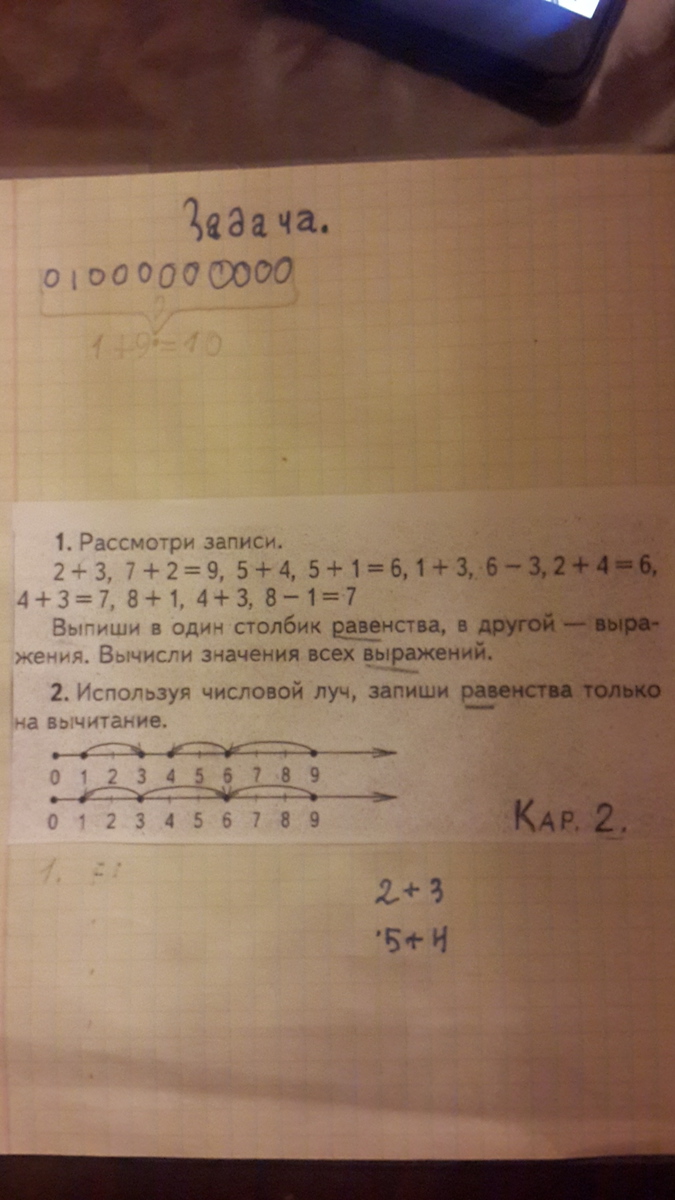 Задача.
010000000000
?
1+9=10
1. Рассмотри записи.
2 + 3, 7 + 2 = 9, 5 + 4, 5 + 1 = 6, 1 + 3, 6 − 3, 2 + 4 = 6,
4 + 3 = 7, 8 + 1, 4 + 3, 8 − 1 = 7
Выпиши в один столбик равенства, в другой — выра-
жения. Вычисли значения всех выражений.
2. Используя числовой луч, запиши равенства только
на вычитание.
0 1 2 3 4 5 6 7 8 9
0 1 2 3 4 5 6 7 8 9
Кар. 2.
1.
2+3
5+4